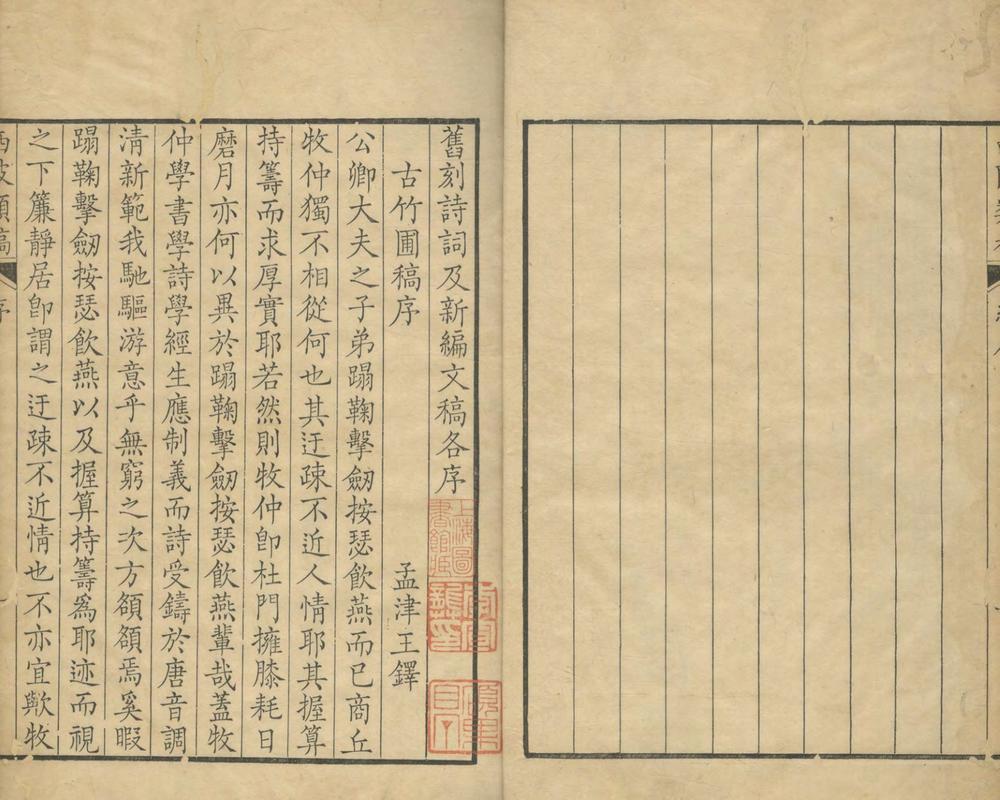 舊刻詩詞及新編文稿各序
古竹圃稿序 孟津王鐸
公卿大夫之子弟蹋鞠擊劒按瑟飲燕而已商丘
牧仲獨不相從何也其迂疎不近人情耶其握算
持籌而求厚實耶若然則牧仲卽杜門擁膝耗日
磨月亦何以異於蹋鞠擊劒按瑟飲燕輩哉蓋牧
仲學書學詩學經生應制義而詩受鑄於唐音調
淸新範我馳驅游意乎無窮之次方頟頟焉奚暇
蹋鞠擊劒按瑟飲燕以及握算持籌爲耶迹而視
之下簾靜居卽謂之迂疎不近情也不亦宜歟牧
西陂類稿 序
上海圖書館藏